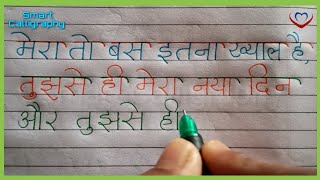 Smart
Calligraphy
मेरा तो बस इतना ख्याल है,
तुझसे ही मेरा नया दिन
और तुझसे ही